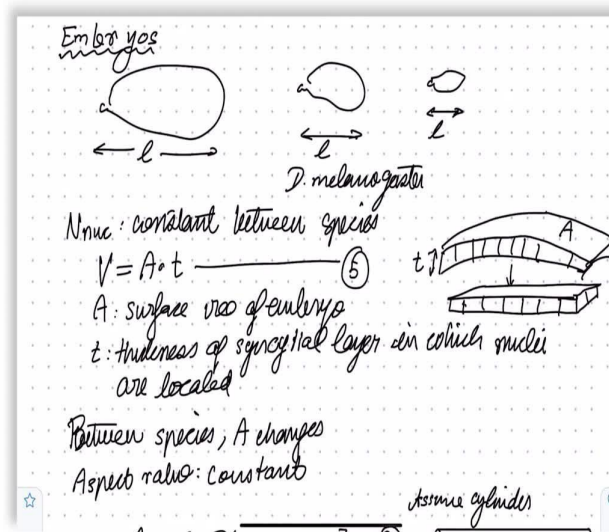 Embryos
l
l
l
D. melanogaster
Nnuc : constant between species
V = A · t ⑤
A
t
A : surface area of embryo
t : thickness of syncytial layer in which nuclei
are located
Between species, A changes
Aspect ratio : constant
Assume cylinder